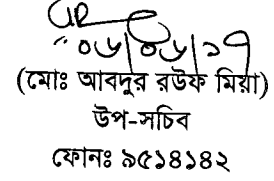 ০৬/০৬/১৭
(মোঃ আবদুর রউফ মিয়া)
উপ-সচিব
ফোনঃ ৯৫১৪১৪২